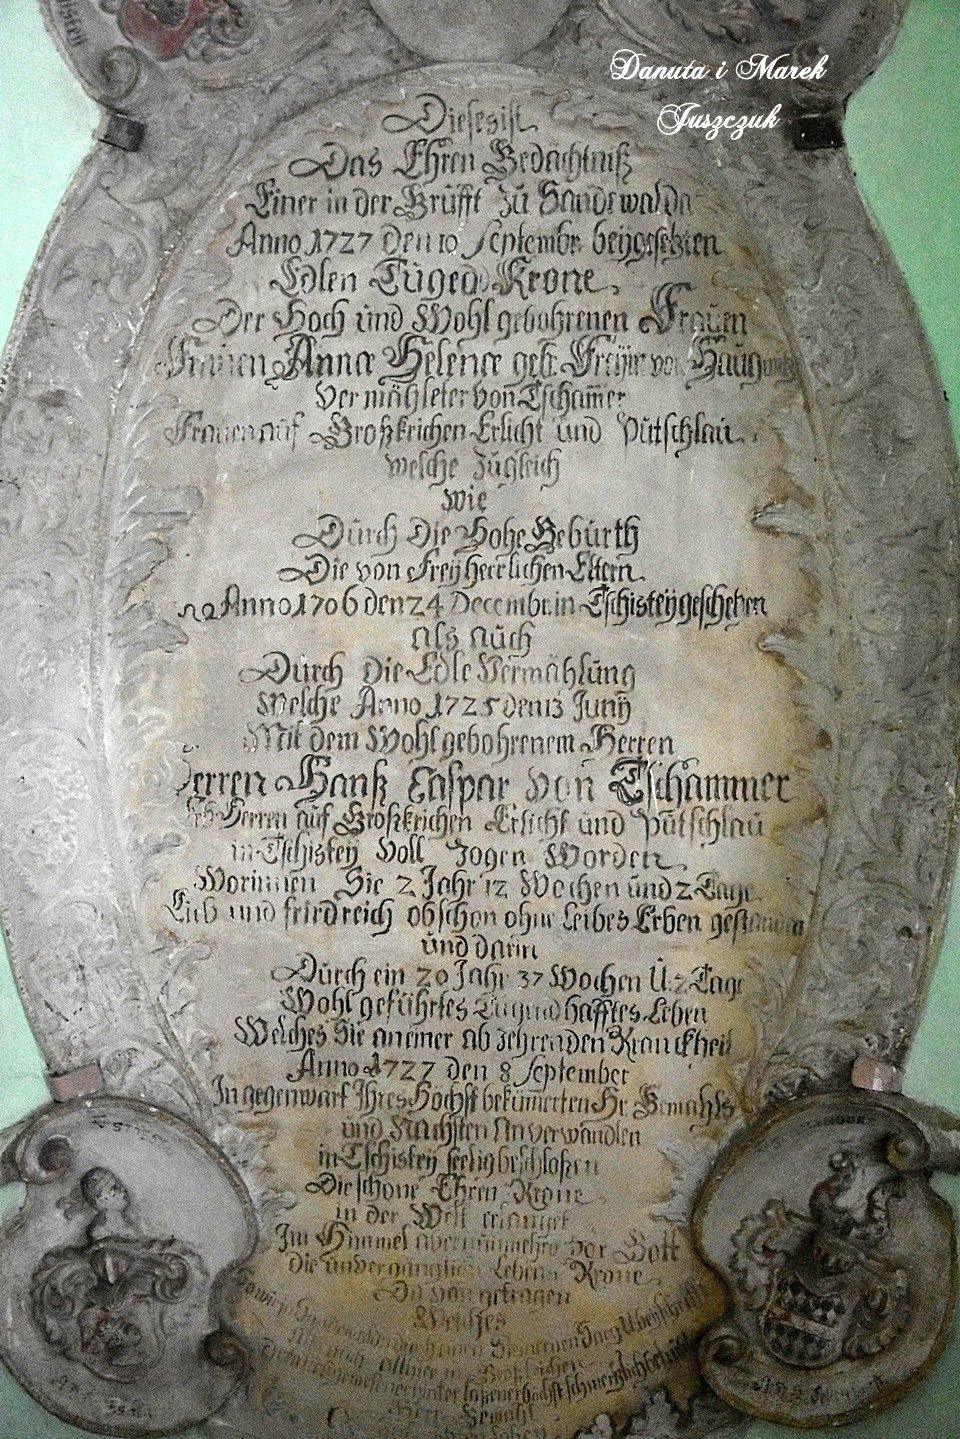 Danuta i Marek
Juszczuk
Dieses ist
Das Ehren Gedächtniß
Einer in der Grufft Zu Sandewalda
Anno 1727 den 10 Septembr. beÿgesetzten
Edlen Tugend Krone,
Der Hoch und Wohl gebohrenen Frauen
Frauen Annæ Helenæ geb. Freÿin von Haugwitz
Vermähleter von Tscham̄er
Frauen auf Großkrichen Erlicht und Pütschlau
welche Zugleich
wie
Durch Die Hohe Gebürth
Die von Freÿherrlichen Eltern
Anno 1706 den 24 Decembr. in Tschisteÿ geschehen
als auch
Durch Die Edle Vermählung
Welche Anno 1725 den 13 Junÿ
Mit dem Wohl gebohrenem Herren
Herren Hanß Caspar von Tschammer
Herren auf Großkrichen Erlicht und Pütschlau
in Tschisteÿ Voll Zogen Worden
Worinnen Sie 2 Jahr 12 Wochen und 2 Tage
Lieb und friedreich obschon ohne Leibes Erben gestanden
und darin
Durch ein 20 Jahr 37 Wochen U. 2 Tage
Wohl geführtes Tugendhafftes Leben
Welches Sie an einer ab zehrenden Kranckheit
Anno 1727 den 8 September
In gegenwart Ihres Höchst bekümmerten Hr. Gemahls
und Nächsten Anverwandten
in Tschisteÿ seelig beschloßen
Die schöne Ehren Krone
in der Welt erlanget
Im Himmel aber nunmehro vor Gott
Die unvergänglich Lebens Krone
Da von getragen
Welches
Herr Gemahl